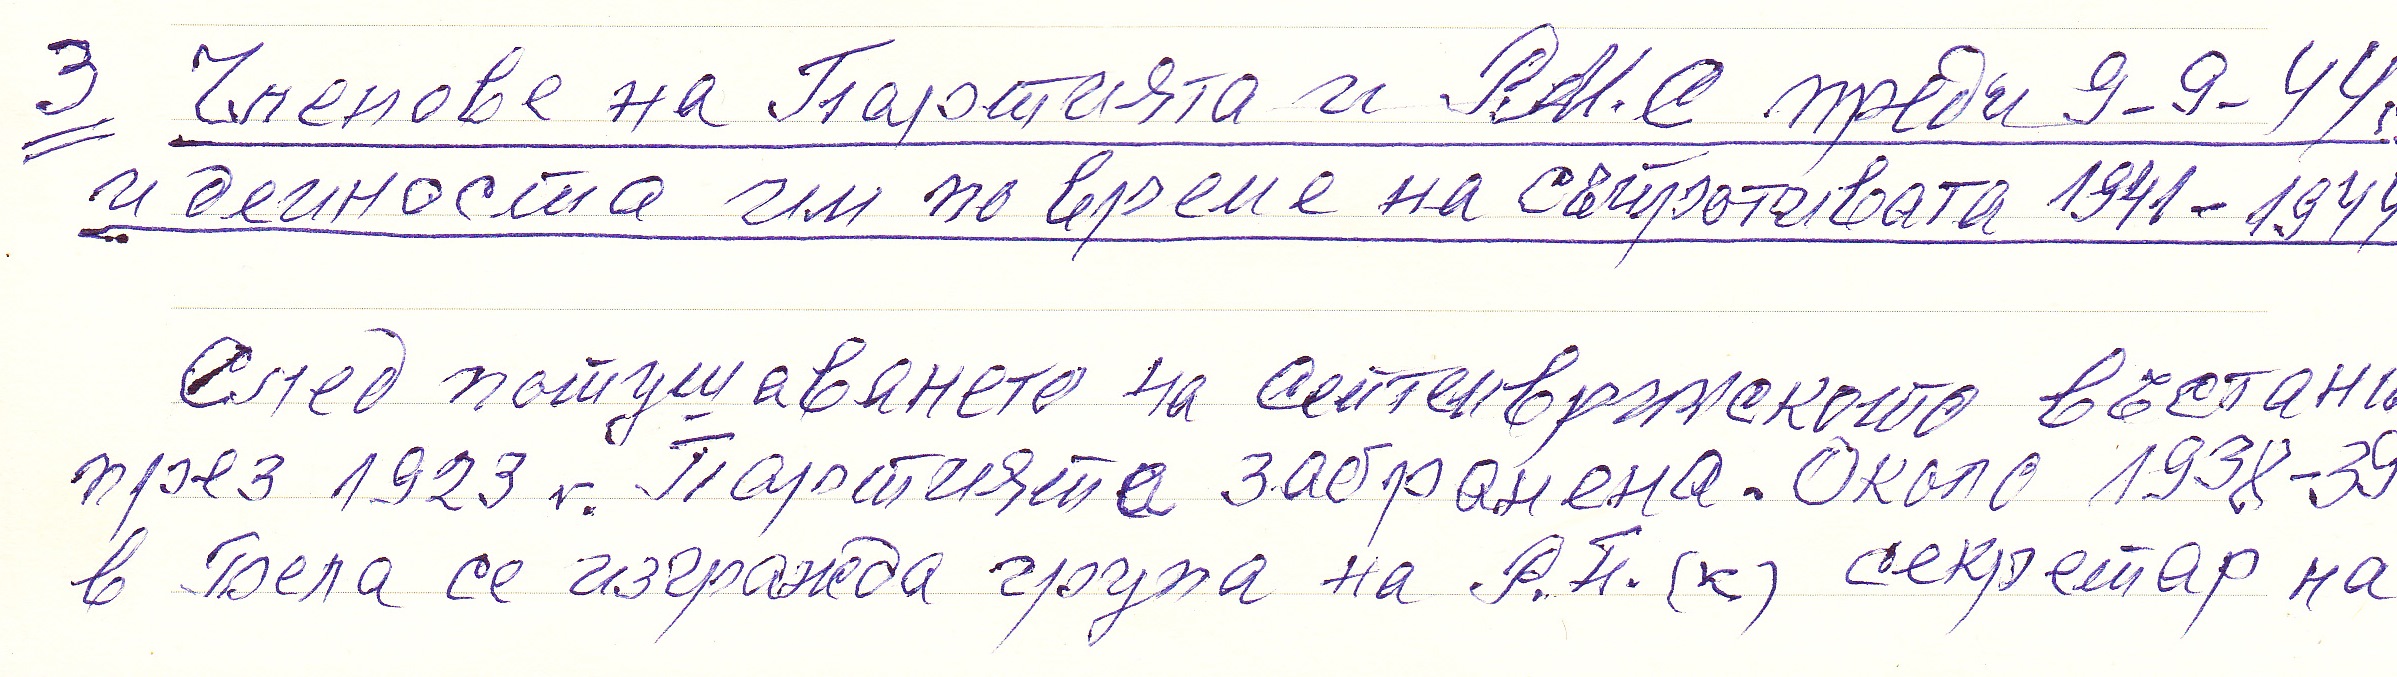 3 Членове на Партията и Р.М.С преди 9-9-44г.
и деиноста им по време на съпротивата 1941-1944
След потушаването на септемврижското въстани
през 1923 г. Партията забранена. Около 1938-39
в Бела се изгражда група на Р.П.(к) секретар на